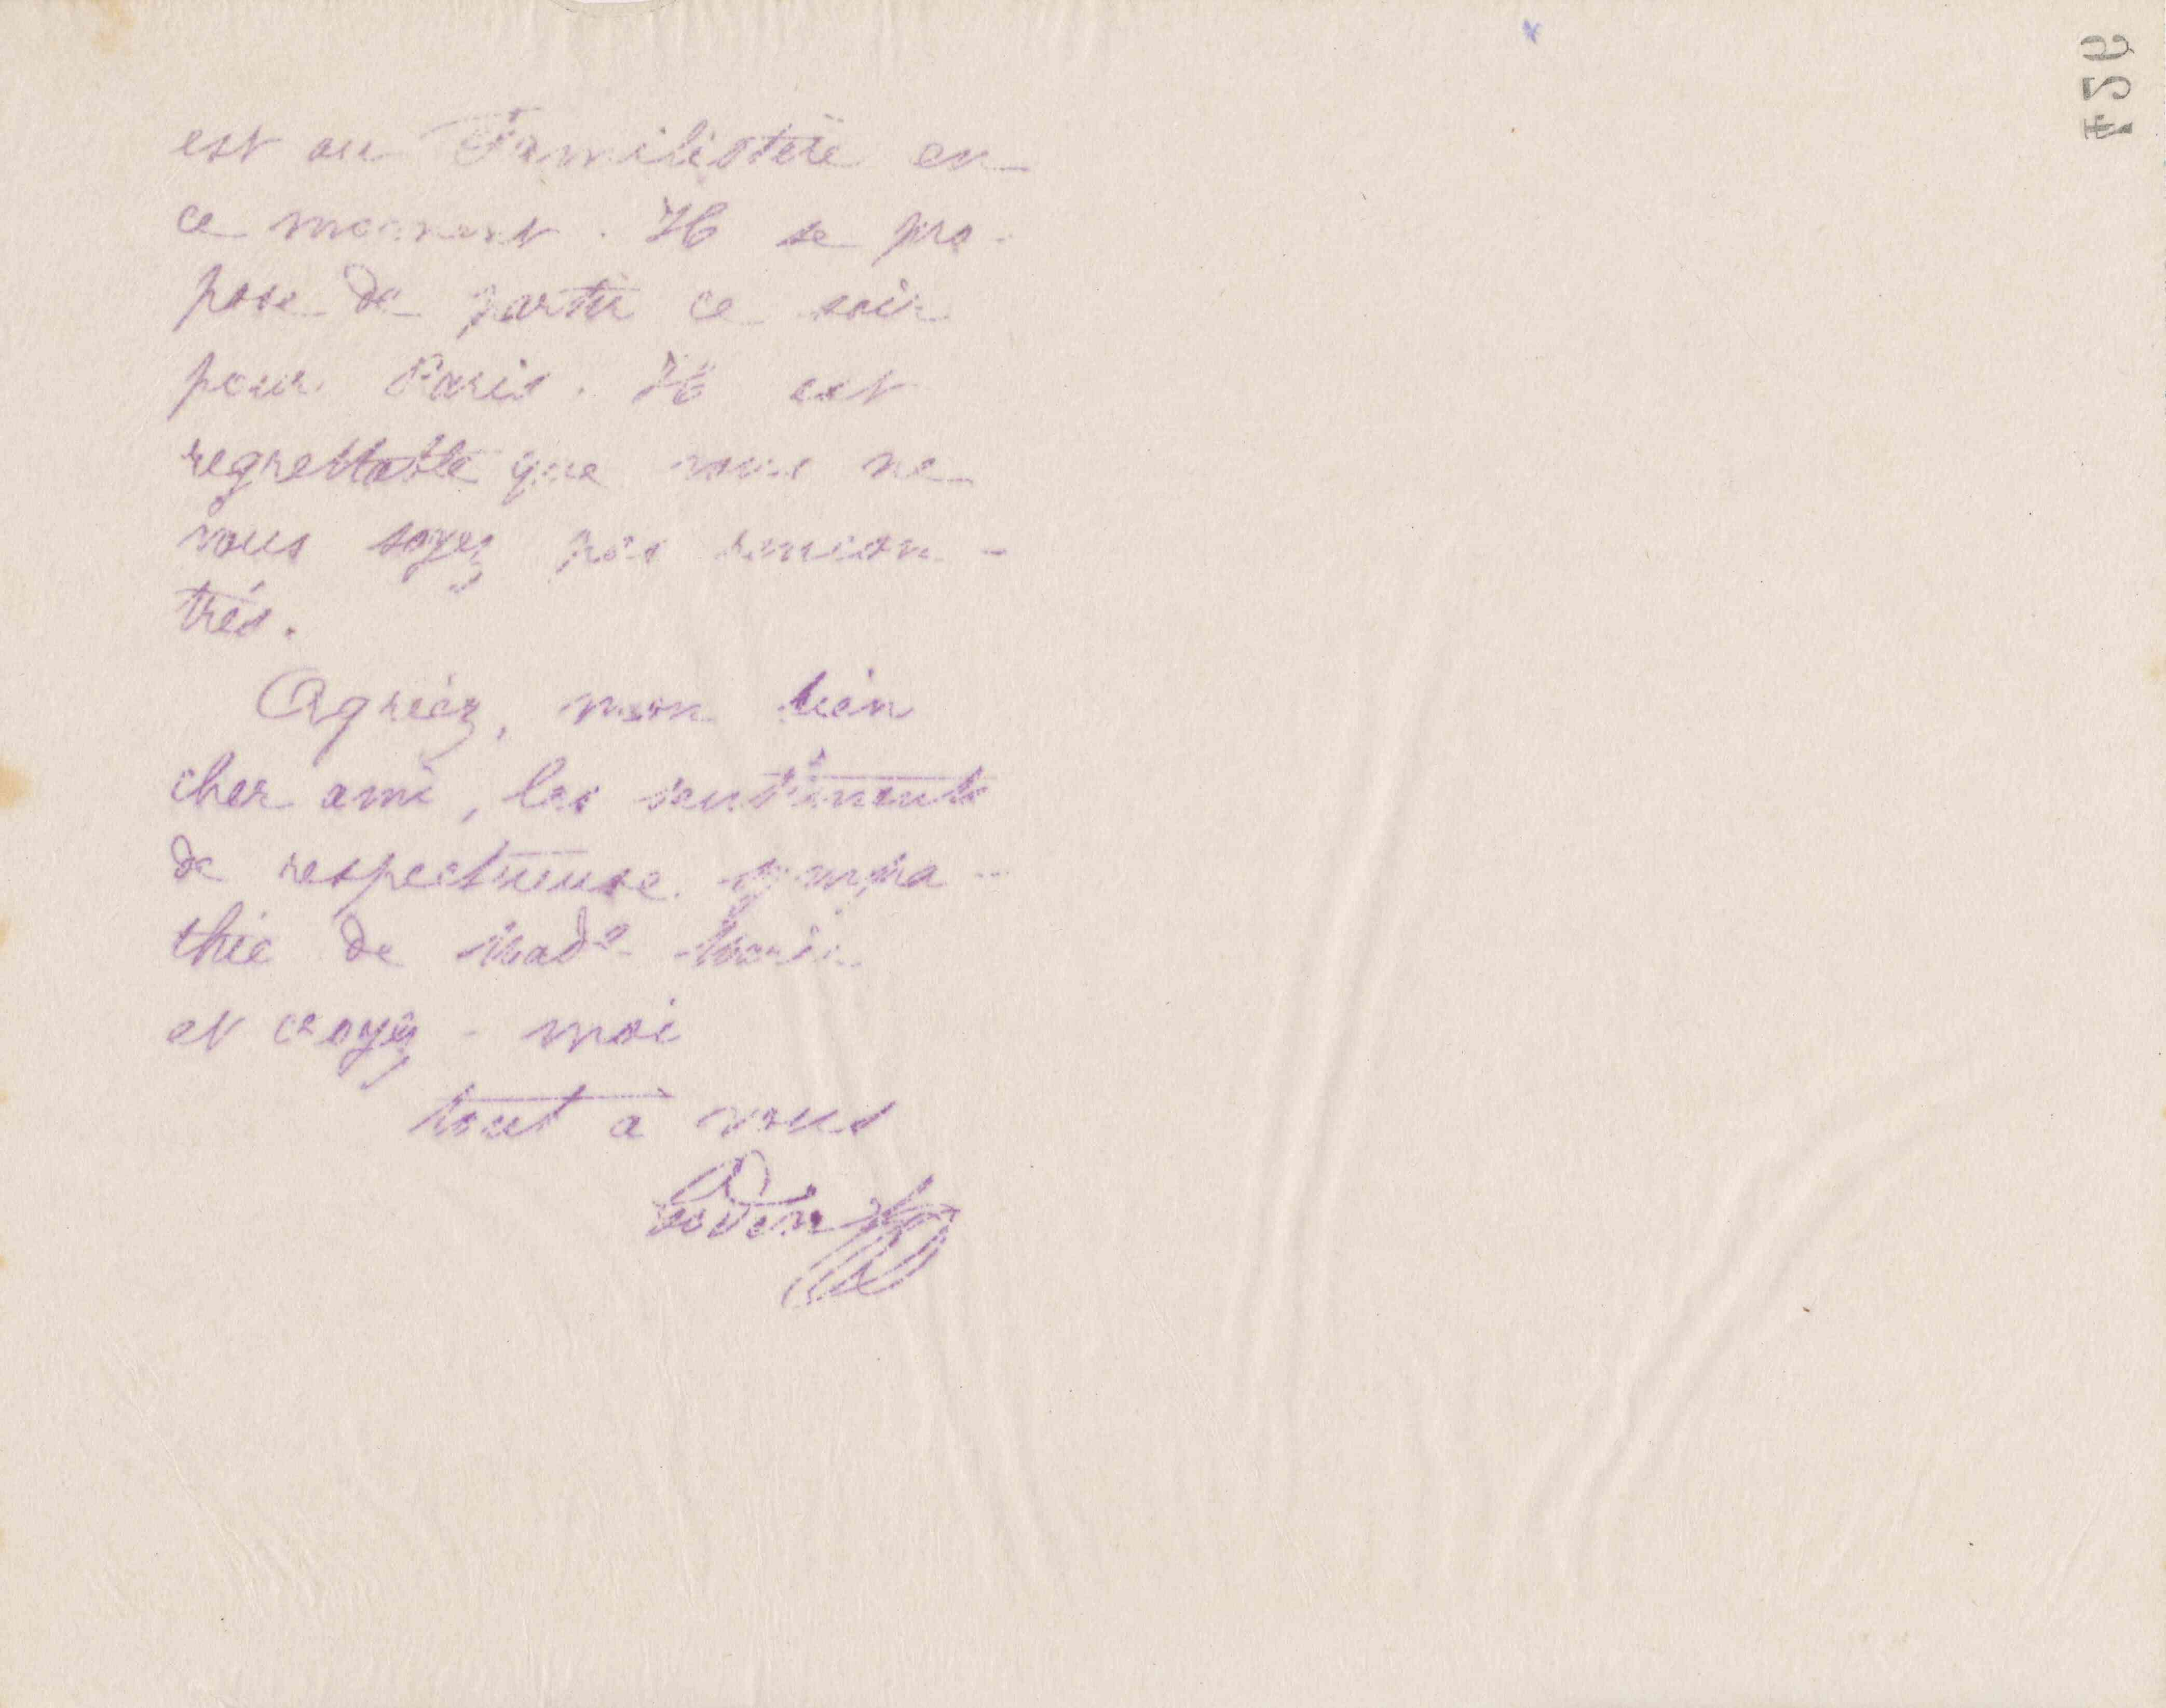 est au Familistère en
ce moment. Il se pro-
pose de partir ce soir
pour Paris. Il est
regrettable que vous ne
vous soyez pas rencon-
trés.
Agréez, mon bien
cher ami, les sentiments
de respectueuse sympa-
thie de Made Marie
et croyez-moi
tout à vous
Godin